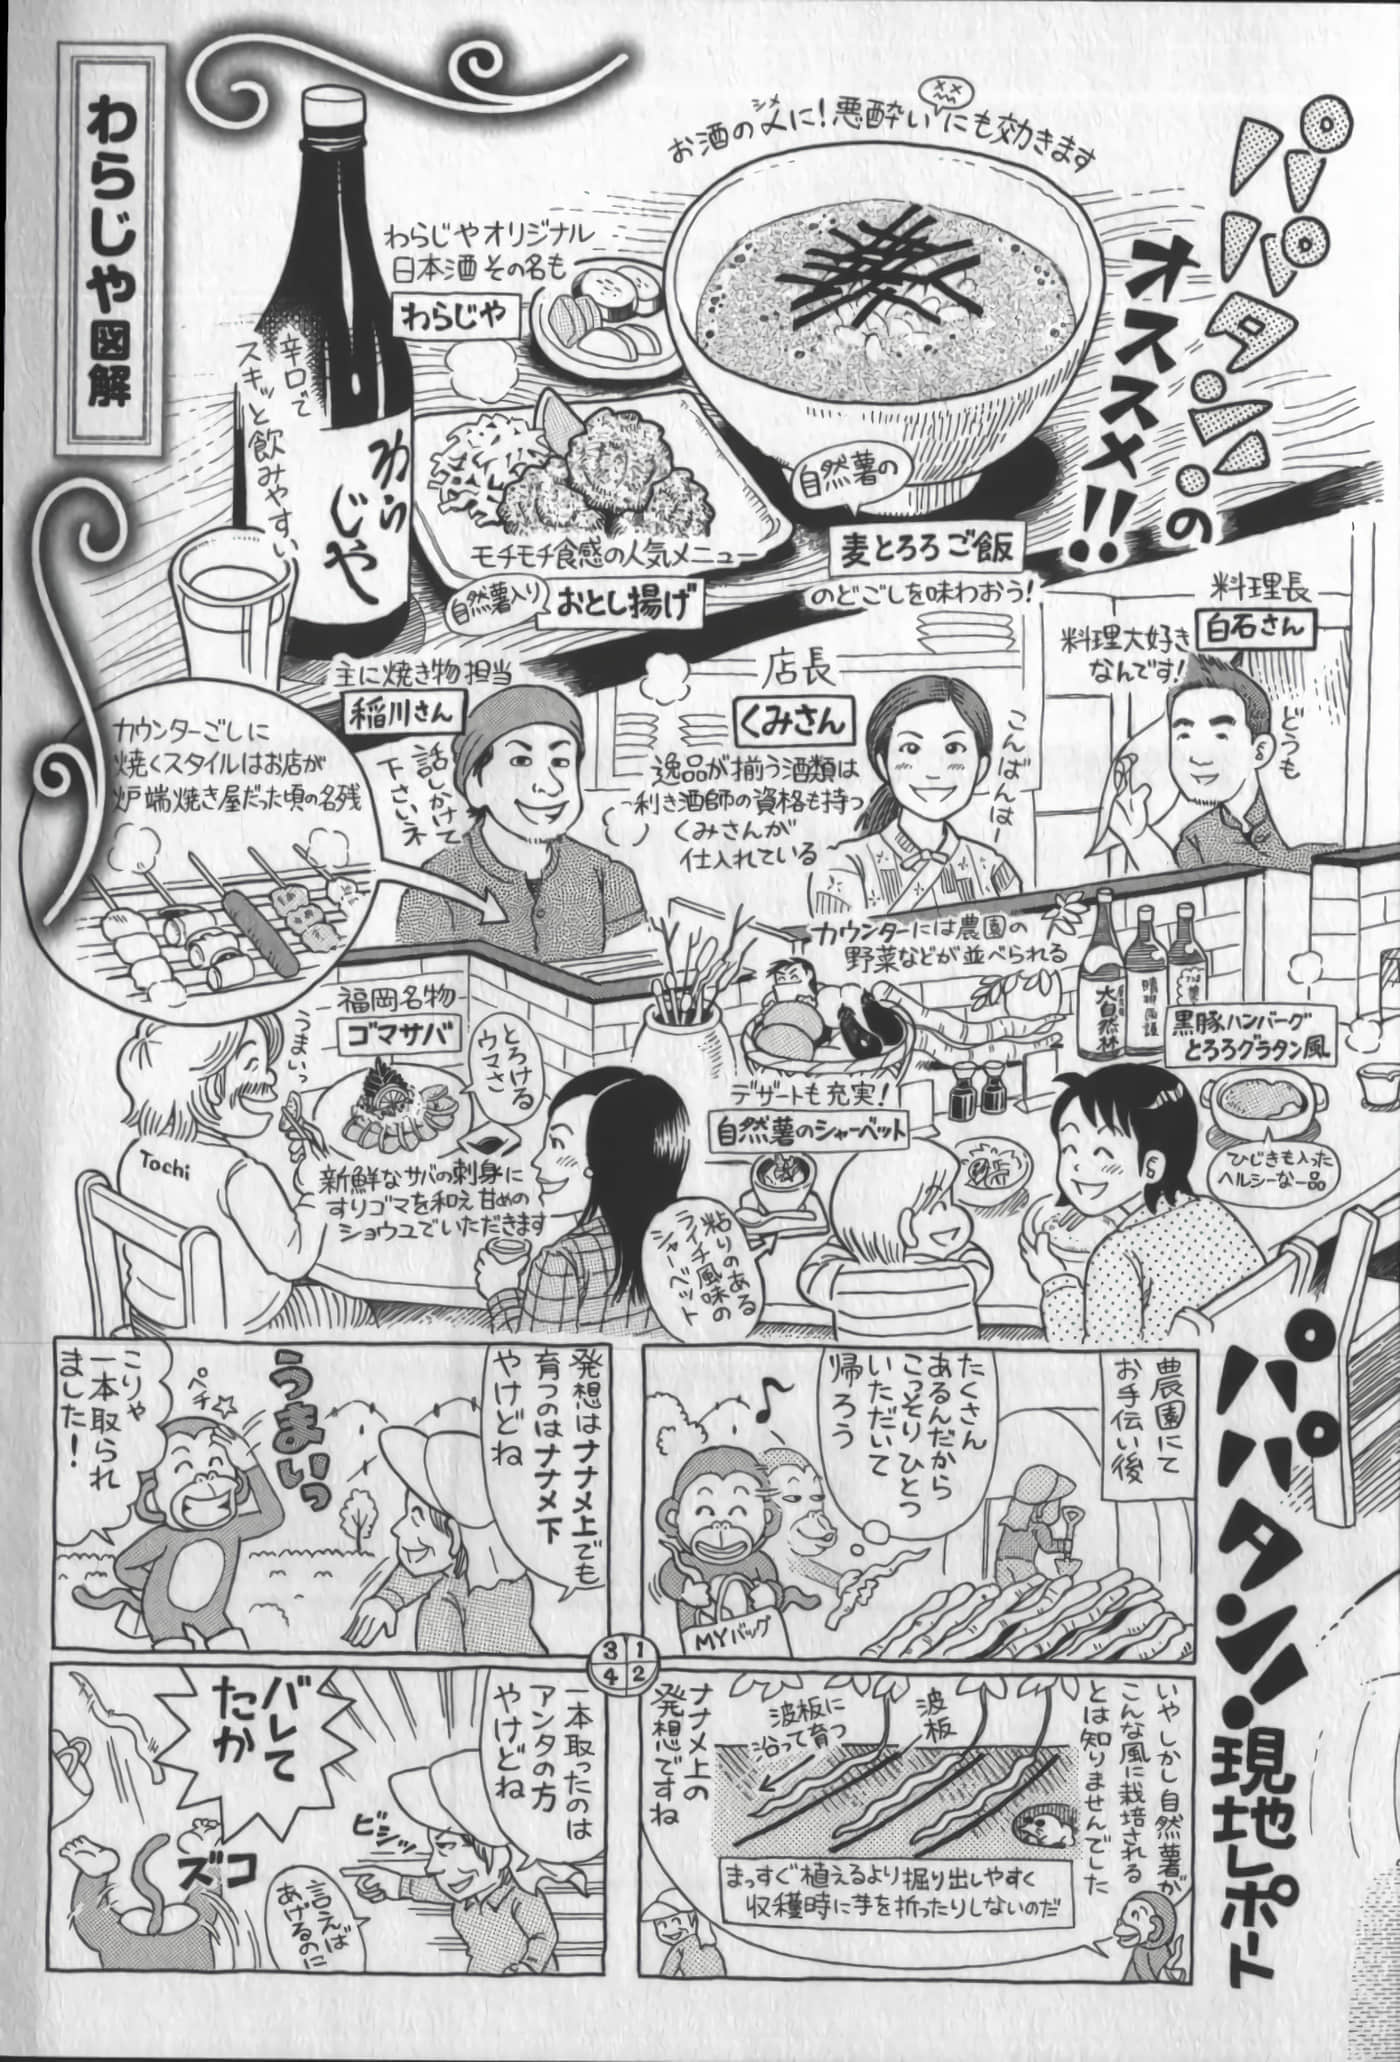 パパタンの
オススメ!!
わらじや図解
お酒の〆に!悪酔いにも効きます
シメ
わらじやオリジナル
日本酒その名も
わらじや
辛口で
スキッと飲みやすい
わらじや
モチモチ食感の人気メニュー
自然薯入り
おとし揚げ
自然薯の
麦とろろご飯
のどごしを味わおう!
料理長
白石さん
料理大好き
なんです!
どうも
店長
くみさん
こんばんはー
逸品が揃う酒類は
利き酒師の資格も持つ
くみさんが
仕入れている
主に焼き物担当
稲川さん
話しかけて
下さいネ
カウンターごしに
焼くスタイルはお店が
炉端焼き屋だった頃の名残
カウンターには農園の
野菜などが並べられる
大自然林
黒豚ハンバーグ
とろろグラタン風
ひじきも入った
ヘルシーな一品
デザートも充実!
自然薯のシャーベット
粘りのある
ライチ風味の
シャーベット
福岡名物
ゴマサバ
とろける
ウマさ
うまいっ
新鮮なサバの刺身に
すりゴマを和え甘めの
ショウユでいただきます
Tochi
パパタン!現地レポート
1
農園にて
お手伝い後
たくさん
あるんだから
こっそりひとつ
いただいて
帰ろう
MYバッグ
2
いやしかし自然薯が
こんな風に栽培される
とは知りませんでした
波板
波板に
沿って育つ
まっすぐ植えるより掘り出しやすく
収穫時に芋を折ったりしないのだ
ナナメ上の
発想ですね
3
発想はナナメ上でも
育つのはナナメ下
やけどね
うまいっ
ペチ
こりゃ
一本取られ
ました!
4
一本取ったのは
アンタの方
やけどね
ビシッ
バレて
たか
ズコ
言えば
あげるのに